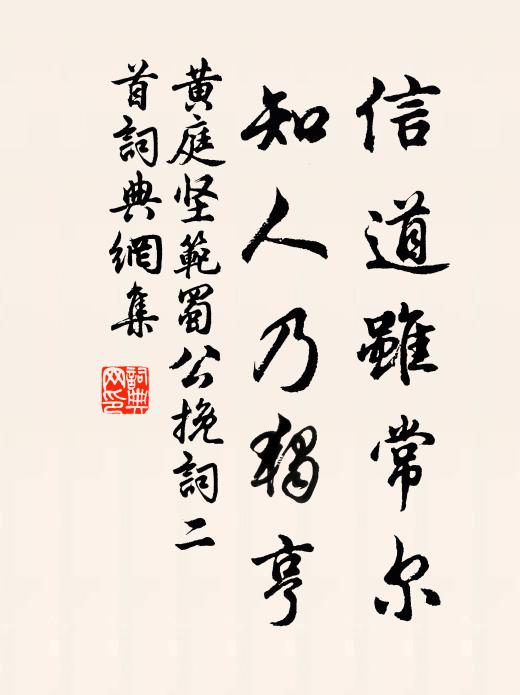 信道雖常尔
知人乃獨亨
黄庭坚範蜀公挽詞二
首詞典網集
詞典
网印